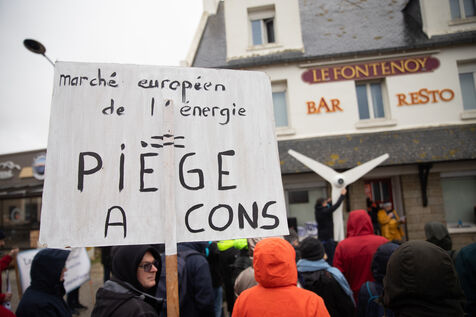 marché européen
de l'énergie
=
PIÈGE
A CONS
LE FONTENOY
BAR RESTO